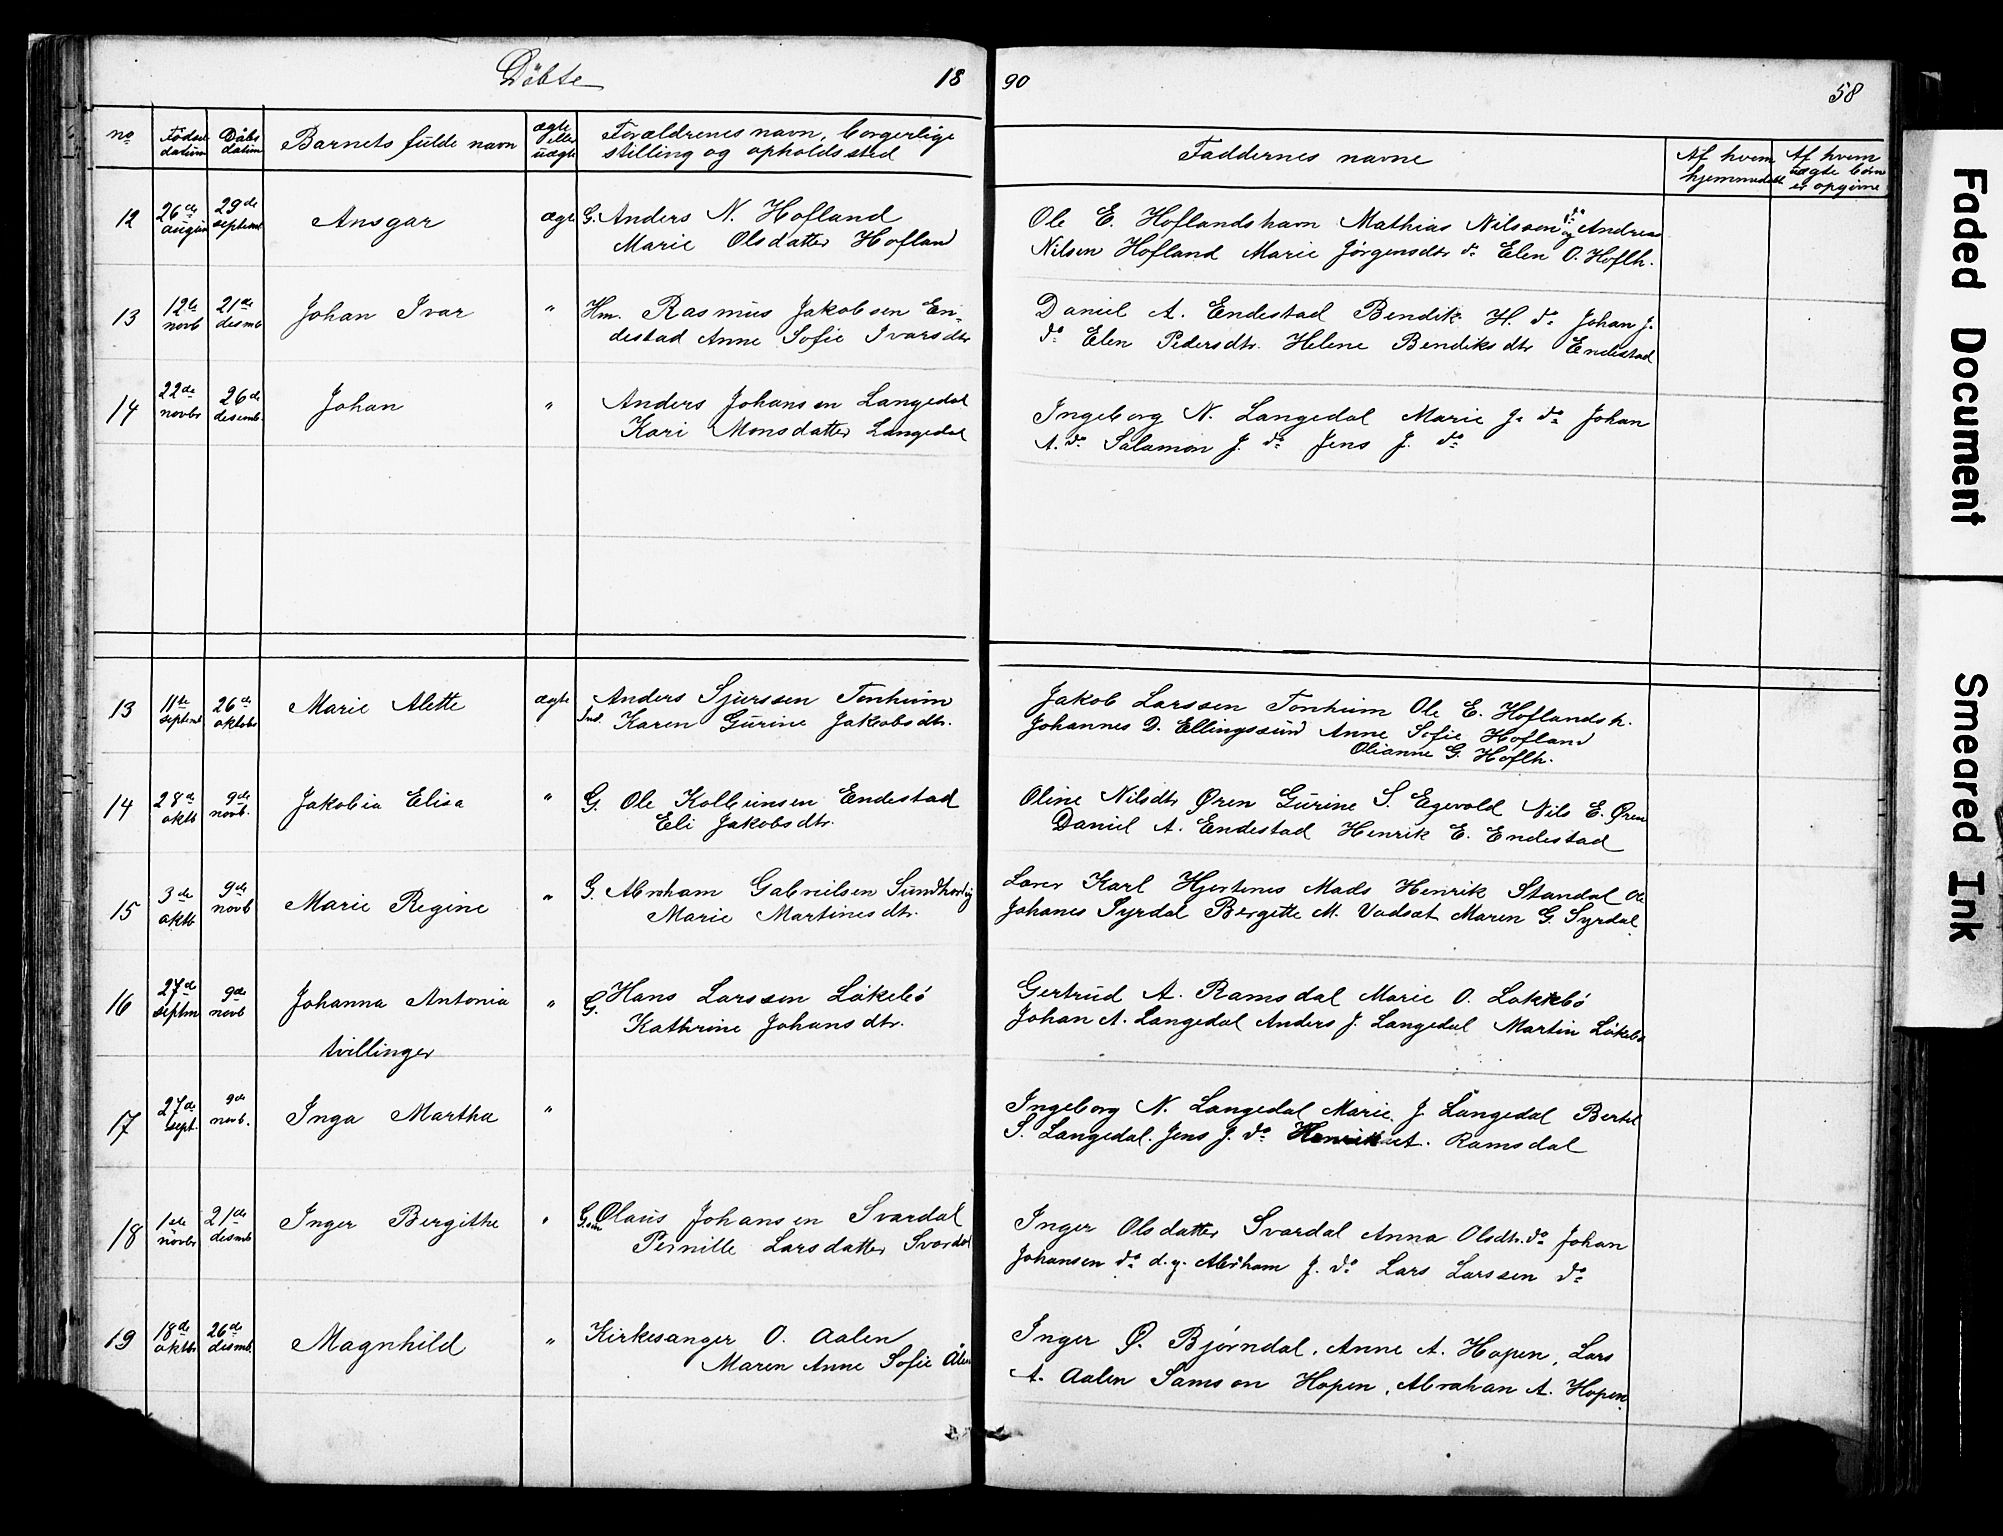 Döbte 18 90 58
no Födsels datum Dåbs datum Barnets fulde navn ægte eller uægte Forældrenes navn, borgerlige stilling og opholdssted Faddernes navne Af hvem hjemmedøbt Af hvem uægte børn er opgivne
12 26de august 29de septemb Ansgar ægte G. Anders N. Hofland Ole E. Hoflandshavn Mathias Nilssen do og Andreas
Marie Olsdatter Hofland Nilsen Hofland Marie Jørgensdtr do Elen O. Hoflh.
13 12te novb 21de desmb Johan Ivar " Hm. Rasmus Jakobsen En- Daniel A. Endestad Bendik H. do Johan J.
destad Anne Sofie Ivarsdtr do Elen Pedersdtr. Helene Bendiksdtr Endestad
14 22de novbr 26de desemb. Johan " Anders Johansen Langedal Ingeborg N. Langedal Marie J. do Johan
Kari Monsdatter Langedal A. do Salamon J. do Jens J. do
13 11te septemb 26de oktobr Marie Alette ægte Anders Sjurssen Tonheim Jakob Larssen Tonheim Ole E. Hoflandsh.
Ins. Karen Gurine Jakobsdtr. Johannes D. Ellingssund Anne Sofie Hofland
Olianne G. Hoflh.
14 28de oktb 9de novb. Jakobia Elisa " G. Ole Kolbeinsen Endestad Oline Nilsdtr Øren Gurine S. Egevold Nils E. Øren
Eli Jakobsdtr. Daniel A. Endestad Henrik E. Endestad
15 3de oktb 9de novb Marie Regine " G. Abraham Gabrielsen Lærer Karl Hjertenes Mads Henrik Standal Ole
Marie Martinesdtr. Johanes Syrdal Bergitte M. Vadset Maren G. Syrdal.
16 27de septm 9de novb Johanna Antonia " G. Hans Larssen Løkebø Gertrud A. Ramsdal Marie O. Løkkebø
Kathrine Johansdtr. Johan A. Langedal Anders J. Langedal Martin Løkebø
tvillinger
17 27de sept. 9de novb. Inga Martha " Ingeborg N. Langedal Marie J. Langedal Bertel
S. Langedal. Jens J. do Henrik A. Ramsdal
18 1ste novbr 21de desmb Inger Bergithe " Gsøn Olaus Johansen Svardal Inger Olsdatter Svardal Anna Olsdtr. do Johan
Pernille Larsdatter Svardal Johansen do d.y. Abrham J. do Lars Larssen do
19 18de oktbr 26de desmb. Magnhild " Kirkesanger O. Aalen Inger Ø. Bjørndal, Anne A. Hopen, Lars
Maren Anne Sofie Ålen A. Aalen Samson Hopen, Abraham A. Hopen.
Faded Document
Smeared Ink